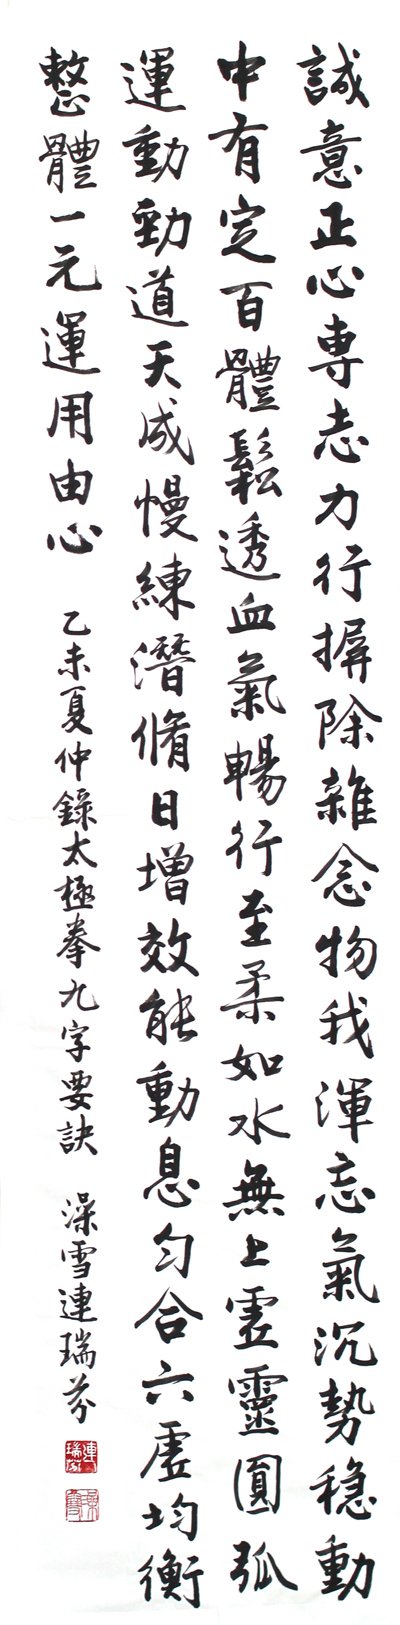 誠意正心専志力行摒除雜念物我渾忘氣沉勢穏動
中有定百體鬆透血氣暢行至柔如水無上虛靈圓弧
運動勁道天成慢練潛脩日增效能動息勻合六虛均衡
整體一元運用由心
乙未夏仲錄太極拳九字要訣
澡雪連瑞芬
連瑞芬